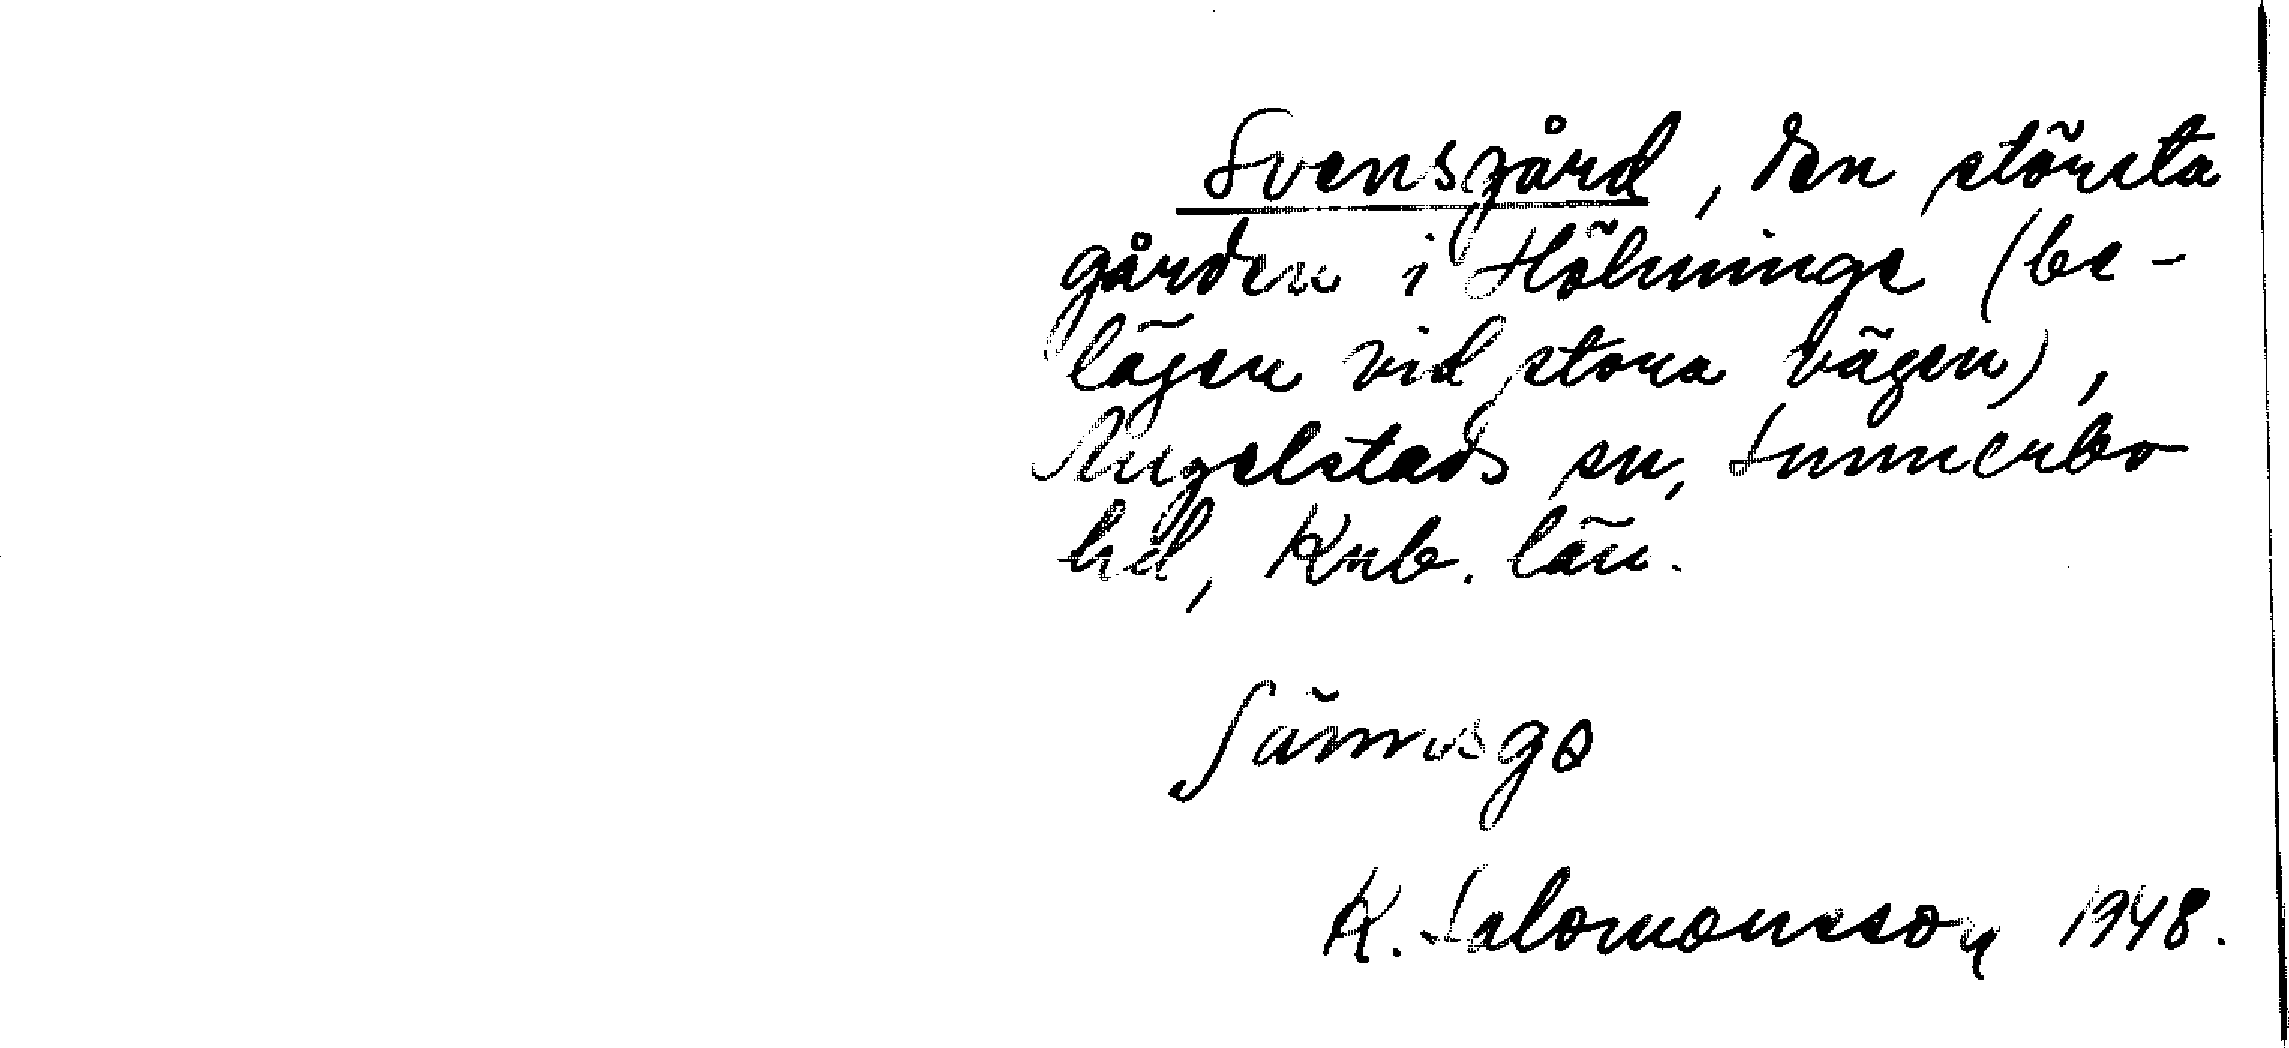 Svensgård, den största
gården i Hölminge (be-
lägen vid stora vägen),
Angelstads sn, Sunnerbo
hd, Krb. län.
K. Salomonsson 1948.